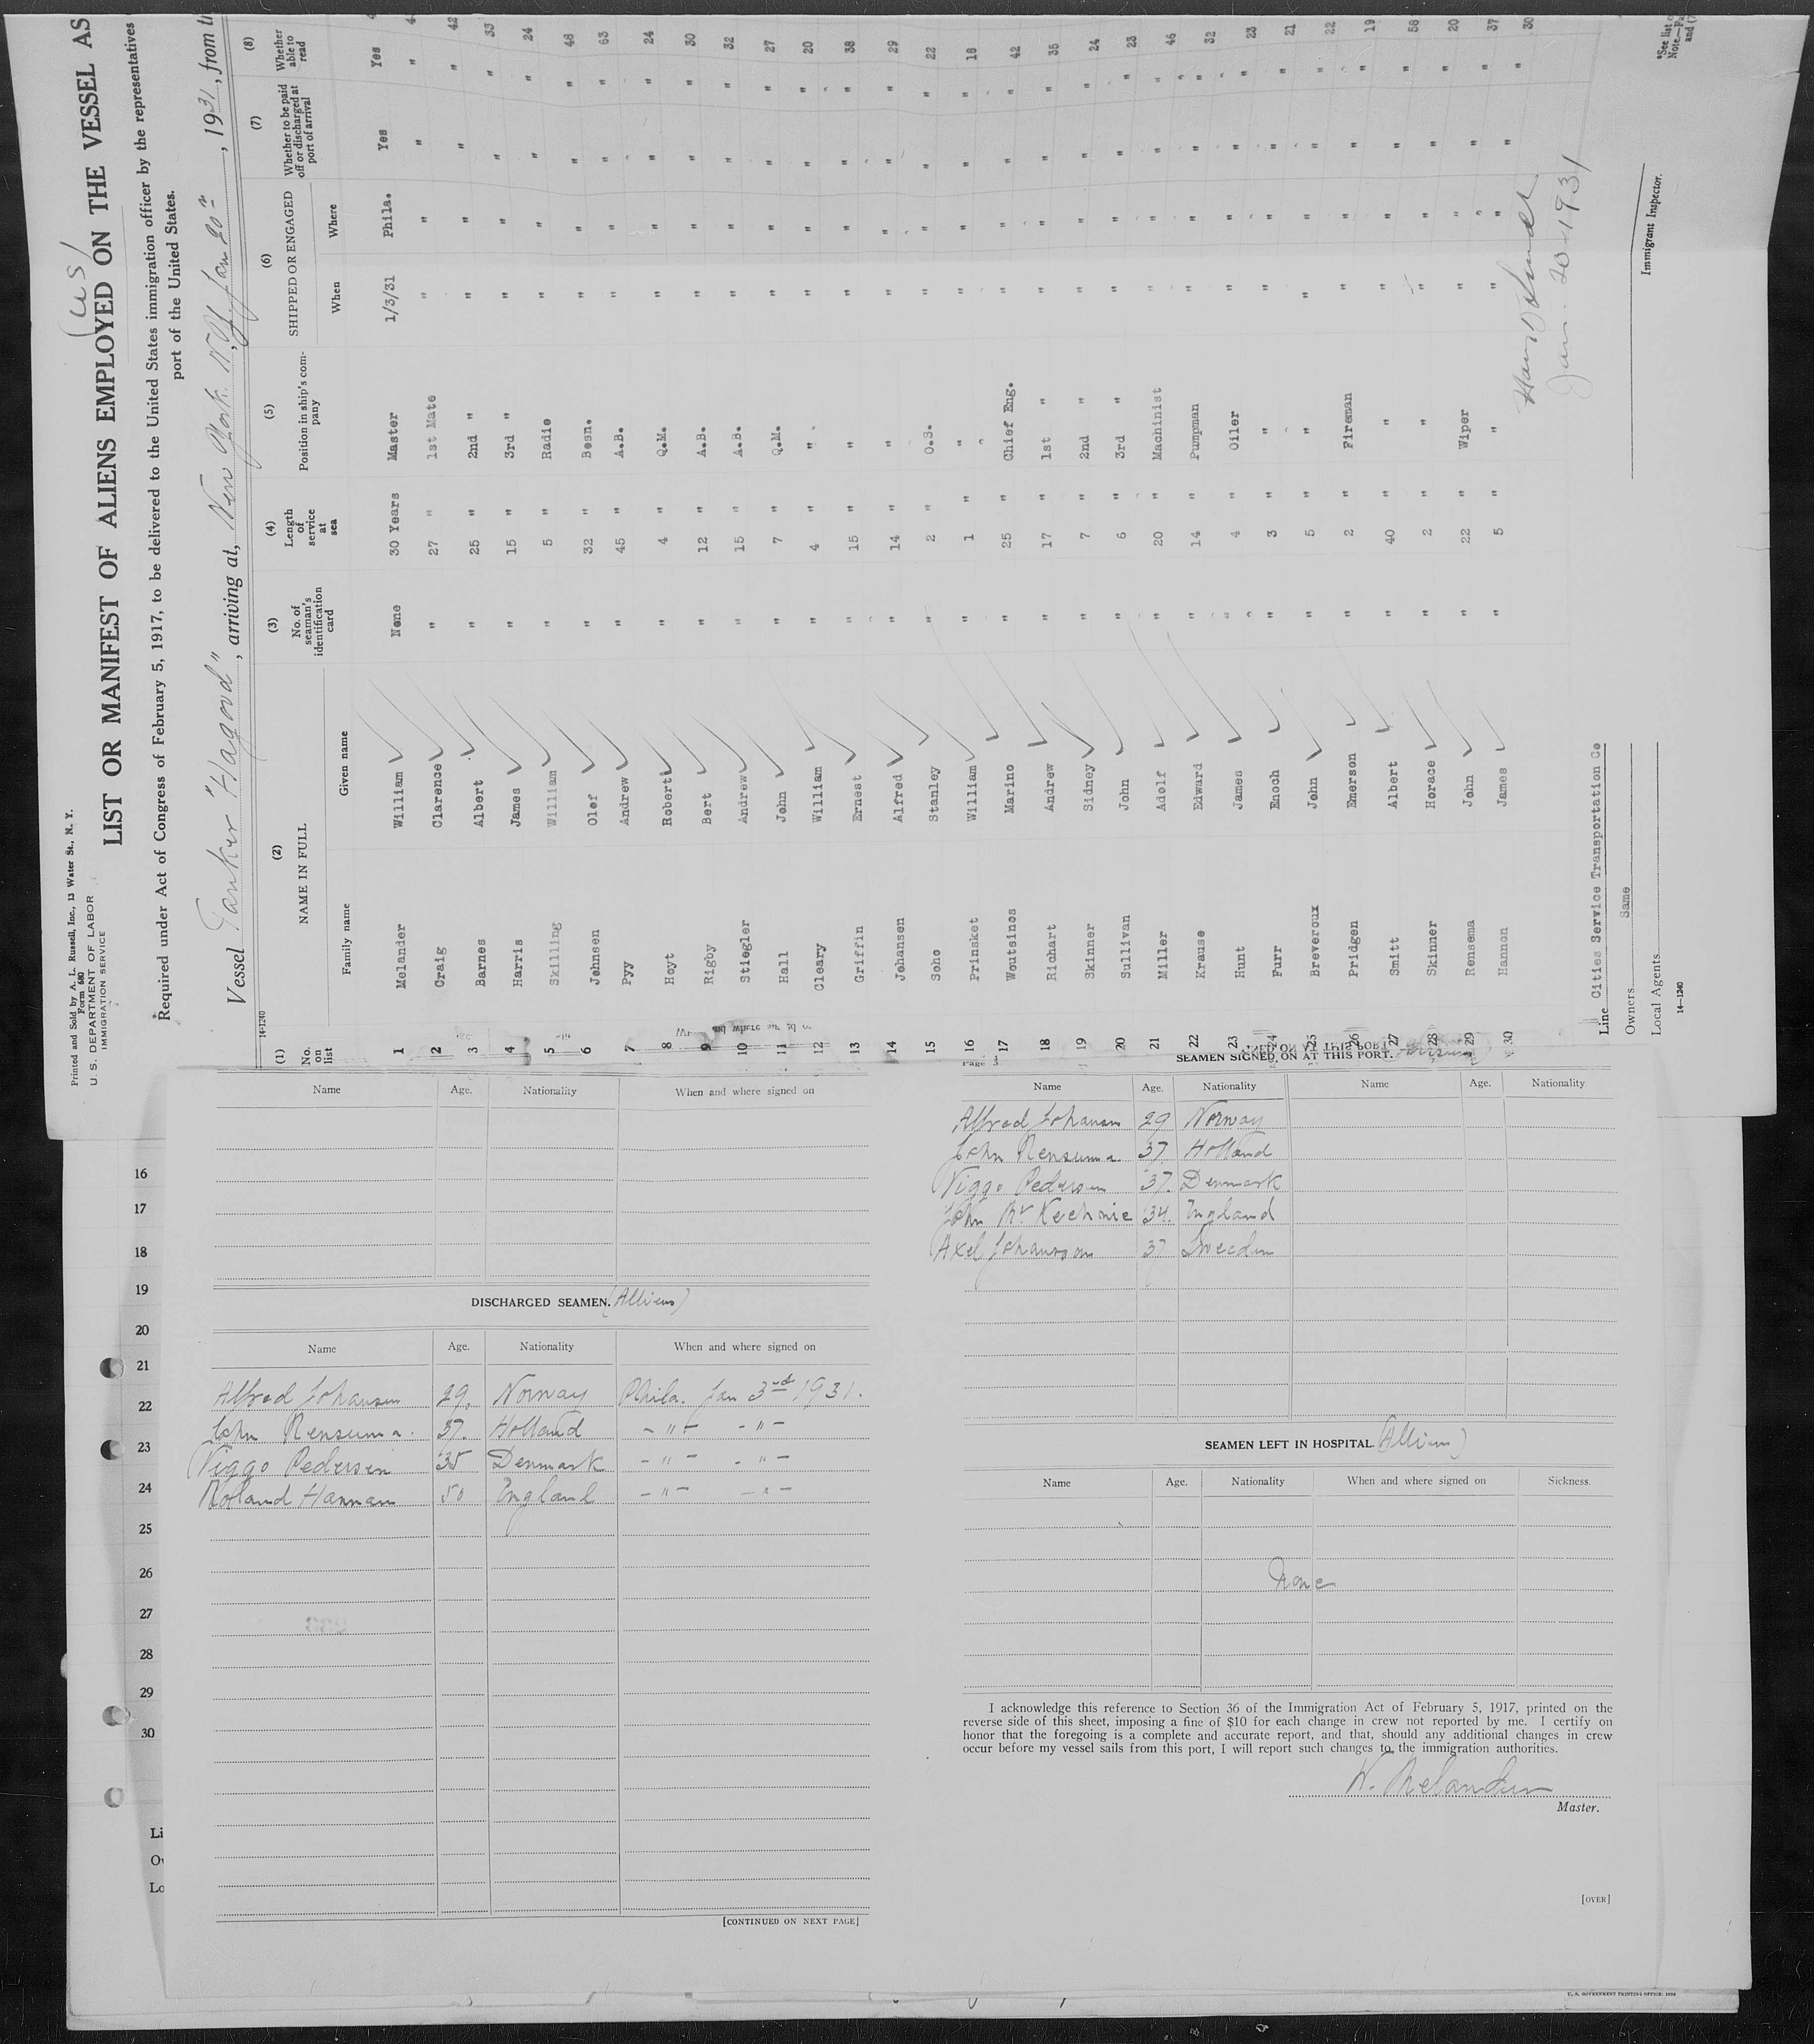 Printed and Sold by A. L. Russell, Inc., 13 Water St., N. Y.
Form 680
U. S. DEPARTMENT OF LABOR
IMMIGRATION SERVICE
(US)
LIST OR MANIFEST OF ALIENS EMPLOYED ON THE VESSEL AS
Required under Act of Congress of February 5, 1917, to be delivered to the United States immigration officer by the representatives
port of the United States.
Vessel Tanker "Hagood", arriving at, New York N.Y. Jan 20, 1931, from
14-1240
(1) No. on list (2) NAME IN FULL Family name Given name (3) No. of seaman's identification card (4) Length of service at sea (5) Position in ship's company (6) SHIPPED OR ENGAGED When Where (7) Whether to be paid off or discharged at port of arrival (8) Whether able to read
1 Melander William None 30 Years Master 1/3/31 Phila. Yes Yes
2 Craig Clarence " 27 " 1st Mate " " " " 42
3 Barnes Albert " 25 " 2nd " " " " " 33
4 Harris James " 15 " 3rd " " " " " 24
5 Skilling William " 5 " Radio " " " " 48
6 Johnsen Olof " 32 " Bosn. " " " " 63
7 Pyy Andrew " 45 " A.B. " " " " 24
8 Hoyt Robert " 4 " Q.M. " " " " 30
9 Rigby Bert " 12 " A.B. " " " " 32
10 Stiegler Andrew " 15 " A.B. " " " " 27
11 Hall John " 7 " Q.M. " " " " 20
12 Cleary William " 4 " " " " " " 38
13 Griffin Ernest " 15 " " " " " " 29
14 Johansen Alfred " 14 " " " " " " 22
15 Soho Stanley " 2 " O.S. " " " " 18
16 Prinsket William " 1 " " " " " " 42
17 Woutsinos Marino " 25 " Chief Eng. " " " " 35
18 Richart Andrew " 17 " 1st " " " " " 24
19 Skinner Sidney " 7 " 2nd " " " " " 23
20 Sullivan John " 6 " 3rd " " " " " 46
21 Miller Adolf " 20 " Machinist " " " " 32
22 Krause Edward " 14 " Pumpman " " " " 23
23 Hunt James " 4 " Oiler " " " " 21
24 Furr Enoch " 3 " " " " " " 22
25 Breveroux John " 5 " " " " " " 19
26 Pridgen Emerson " 2 " Fireman " " " " 58
27 Smitt Albert " 40 " " " " " " 20
28 Skinner Horace " 2 " " " " " " 37
29 Rensema John " 22 " Wiper " " " " 30
30 Hannon James " 5 " " " " " "
Jan. 20-1931
Immigrant Inspector.
Line Cities Service Transportation Co
Owners Same
Local Agents
14-1240
*See list
Note.
and (7
16
17
18
19
20
21
22
23
24
25
26
27
28
29
30
Li
Ow
Lo
Name Age. Nationality When and where signed on
DISCHARGED SEAMEN. (Alliens)
Name Age. Nationality When and where signed on
Alfred Johansen 29. Norway Phila. Jan 3rd 1931.
John Rensuma. 37. Holland - " - - " -
Viggo Pedersen 35 Denmark - " - - " -
Rolland Hannan 50 England - " - - " -
[CONTINUED ON NEXT PAGE]
Page 3
SEAMEN SIGNED ON AT THIS PORT.
Name Age. Nationality Name Age. Nationality
Alfred Johansen 29 Norway
John Rensuma. 37 Holland
Viggo Pedersen 37. Denmark
John Mc Kechnie 34. England
Axel Johansson 37 Sweeden
SEAMEN LEFT IN HOSPITAL. (Alliens)
Name Age. Nationality When and where signed on Sickness.
None
I acknowledge this reference to Section 36 of the Immigration Act of February 5, 1917, printed on the
reverse side of this sheet, imposing a fine of $10 for each change in crew not reported by me. I certify on
honor that the foregoing is a complete and accurate report, and that, should any additional changes in crew
occur before my vessel sails from this port, I will report such changes to the immigration authorities.
W. Melander
Master.
[OVER]
U. S. GOVERNMENT PRINTING OFFICE: 1926